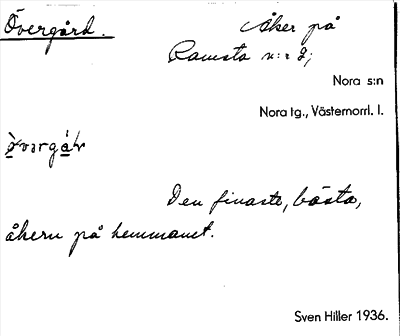 Övergård.
Åker på
Ramsta n:r 2;
Nora s:n
Nora tg., Västernorrl. l.
Den finaste, bästa,
åkern på hemmanet.
Sven Hiller 1936.